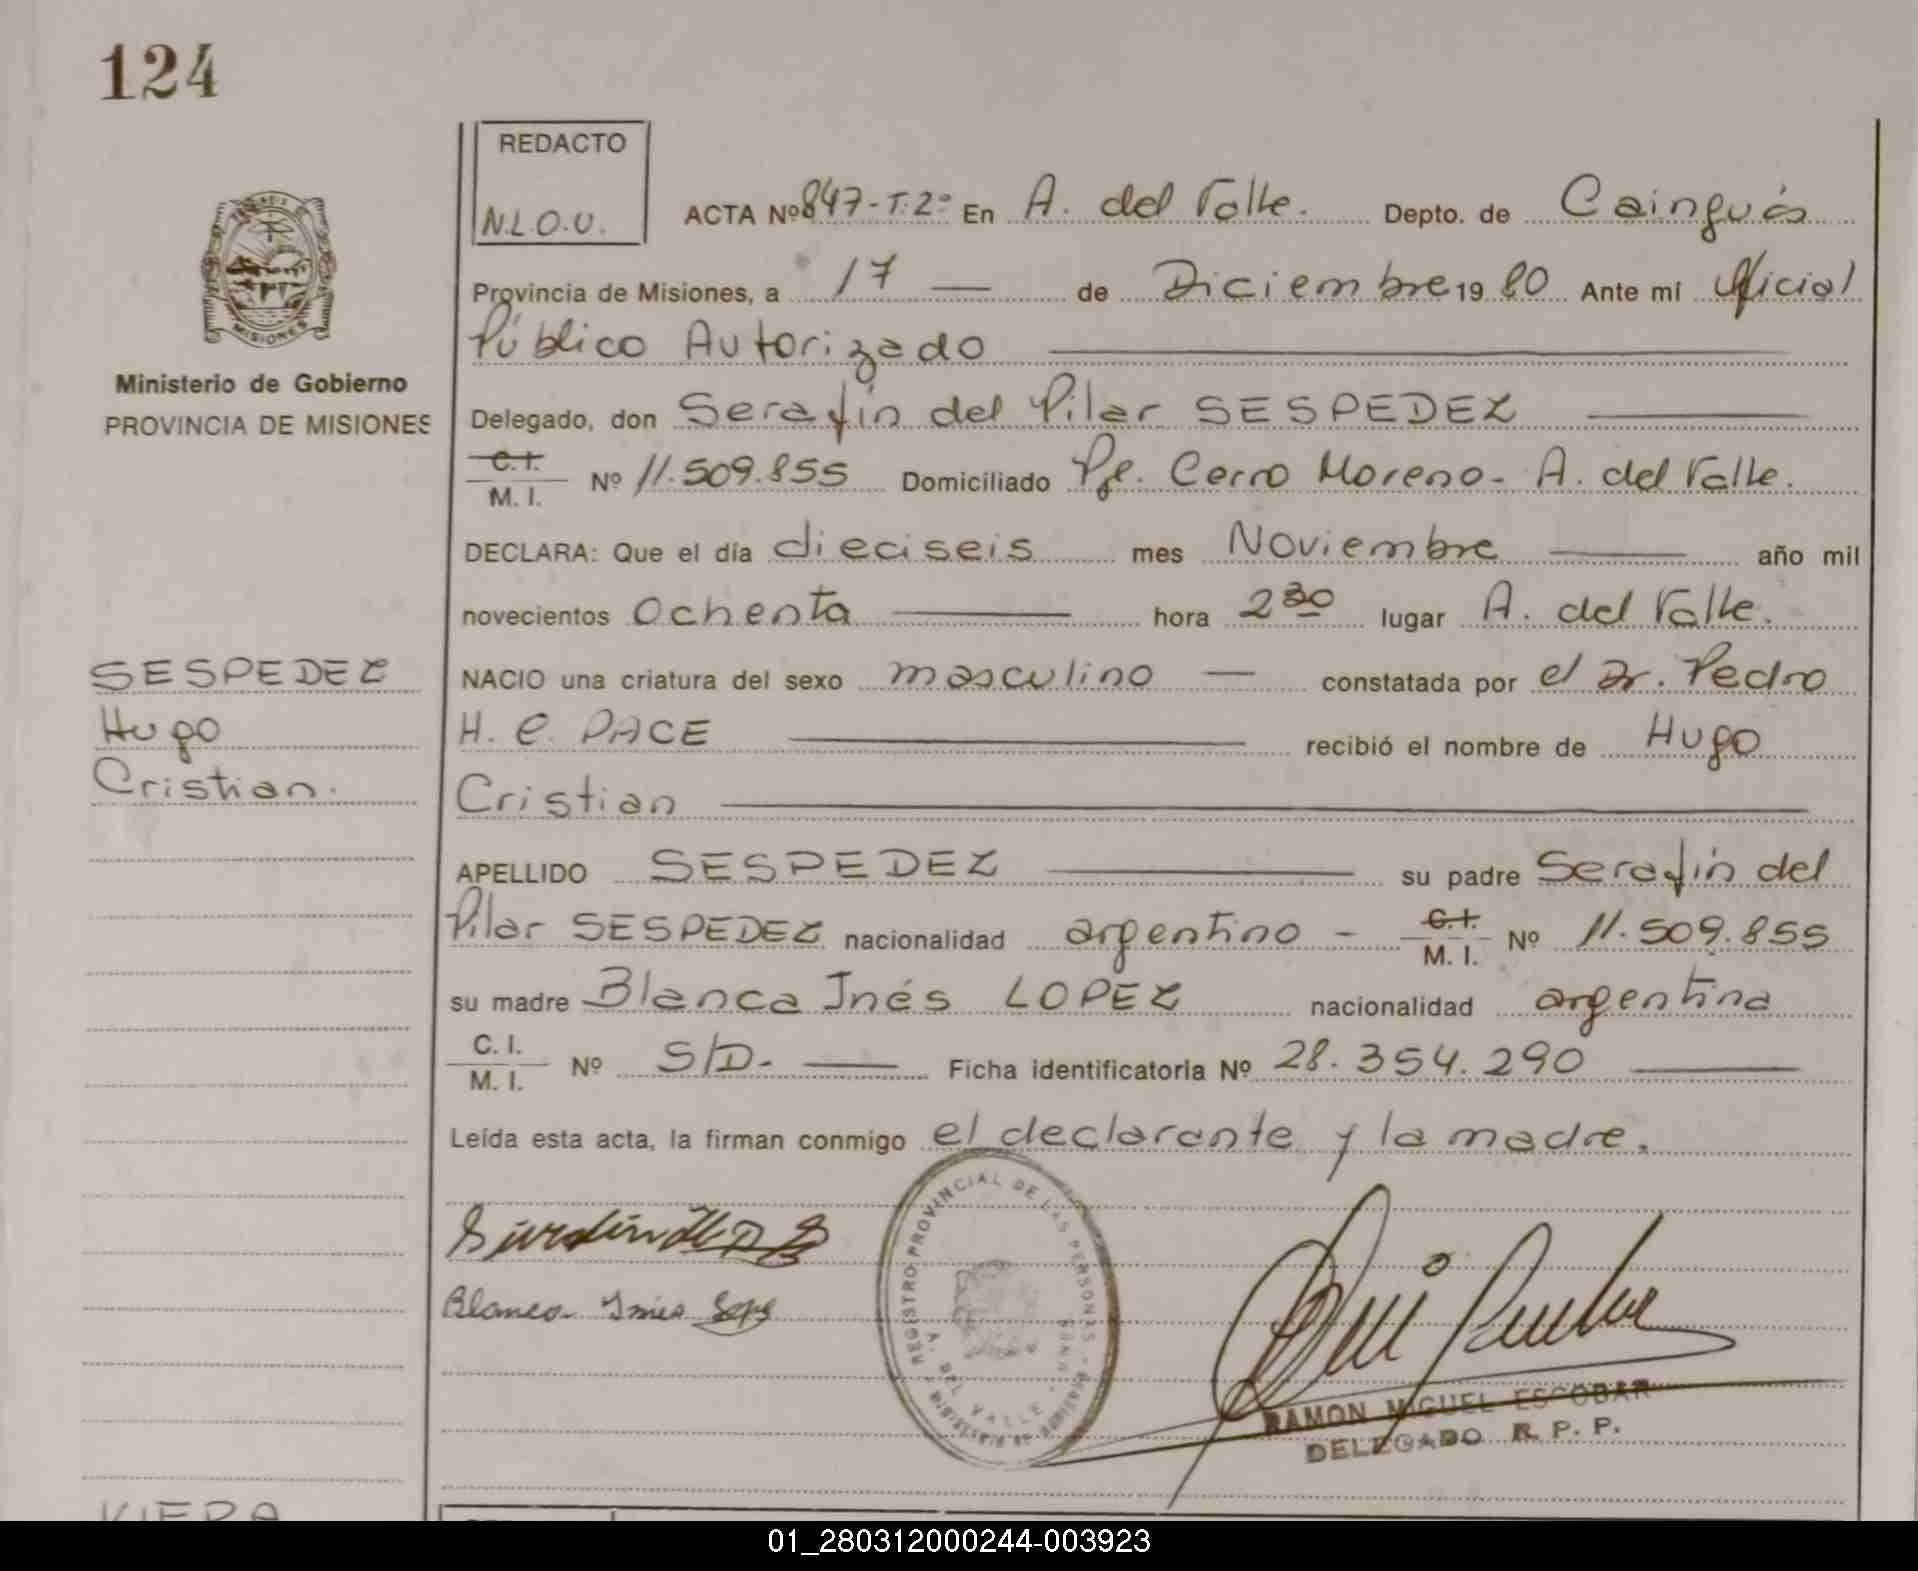 124
REDACTO
N.L.O.U.
ACTA Nº 847-T.2º En A. del Valle. Depto. de Cainguás
Provincia de Misiones, a 17 — de Diciembre 19 80 Ante mí Oficial
Público Autorizado
MISIONES
Ministerio de Gobierno
PROVINCIA DE MISIONES
Delegado, don Serafín del Pilar SESPEDEZ
C.I. M. I. Nº 11.509.855 Domiciliado Pje. Cerro Moreno - A. del Valle.
DECLARA: Que el día dieciseis mes Noviembre año mil
novecientos ochenta hora 2 30 lugar A. del Valle.
SESPEDEZ
Hugo
Cristian.
NACIO una criatura del sexo masculino — constatada por el Dr. Pedro
H. C. PACE recibió el nombre de Hugo
Cristian
APELLIDO SESPEDEZ su padre Serafín del
Pilar SESPEDEZ nacionalidad argentino - C.I. M. I. Nº 11.509.855
su madre Blanca Inés LOPEZ nacionalidad argentina
C. I. M. I. Nº S/D. — Ficha identificatoria Nº 28.354.290
Leída esta acta, la firman conmigo el declarante y la madre.
REGISTRO PROVINCIAL DE LAS PERSONAS
A. DEL VALLE
Blanca Inés
RAMON MIGUEL ESCOBAR
DELEGADO R. P. P.
VIERA
01_280312000244-003923